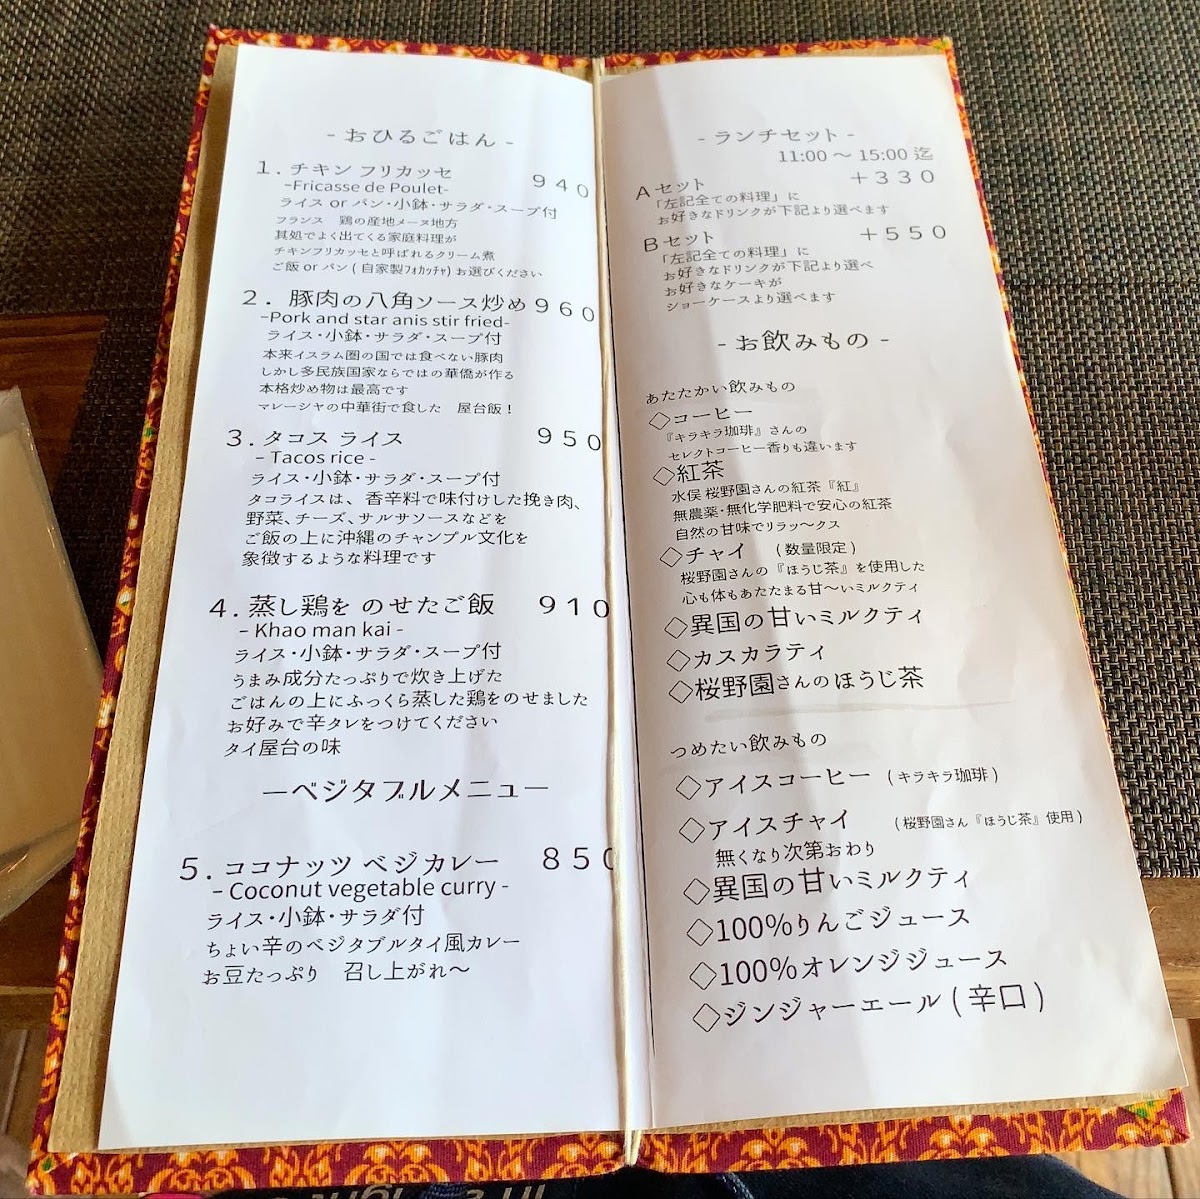 - おひるごはん -
1. チキン フリカッセ 940
–Fricasse de Poulet-
ライス or パン・小鉢・サラダ・スープ付
フランス 鶏の産地メーヌ地方
其処でよく出てくる家庭料理が
チキンフリカッセと呼ばれるクリーム煮
ご飯 or パン ( 自家製ﾌｫｶｯﾁｬ) お選びください
2. 豚肉の八角ソース炒め 960
–Pork and star anis stir fried-
ライス・小鉢・サラダ・スープ付
本来イスラム圏の国では食べない豚肉
しかし多民族国家ならではの華僑が作る
本格炒め物は最高です
マレーシャの中華街で食した 屋台飯！
3. タコス ライス 950
– Tacos rice -
ライス・小鉢・サラダ・スープ付
タコライスは、香辛料で味付けした挽き肉、
野菜、チーズ、サルサソースなどを
ご飯の上に沖縄のチャンプル文化を
象徴するような料理です
4. 蒸し鶏を のせたご飯 910
– Khao man kai -
ライス・小鉢・サラダ・スープ付
うまみ成分たっぷりで炊き上げた
ごはんの上にふっくら蒸した鶏をのせました
お好みで辛タレをつけてください
タイ屋台の味
ーベジタブルメニュー
5. ココナッツ ベジカレー 850
– Coconut vegetable curry -
ライス・小鉢・サラダ付
ちょい辛のベジタブルタイ風カレー
お豆たっぷり 召し上がれ〜
- ランチセット -
11:00 〜 15:00 迄
A セット ＋330
「左記全ての料理」に
お好きなドリンクが下記より選べます
B セット ＋550
「左記全ての料理」に
お好きなドリンクが下記より選べ
お好きなケーキが
ショーケースより選べます
- お飲みもの -
あたたかい飲みもの
◇コーヒー
『キラキラ珈琲』さんの
セレクトコーヒー香りも違います
◇紅茶
水俣 桜野園さんの紅茶『紅』
無農薬・無化学肥料で安心の紅茶
自然の甘味でリラッ〜クス
◇チャイ ( 数量限定 )
桜野園さんの『ほうじ茶』を使用した
心も体もあたたまる甘〜いミルクティ
◇異国の甘いミルクティ
◇カスカラティ
◇桜野園さんのほうじ茶
つめたい飲みもの
◇アイスコーヒー ( キラキラ珈琲 )
◇アイスチャイ ( 桜野園さん『ほうじ茶』使用 )
無くなり次第おわり
◇異国の甘いミルクティ
◇100%りんごジュース
◇100%オレンジジュース
◇ジンジャーエール ( 辛口 )